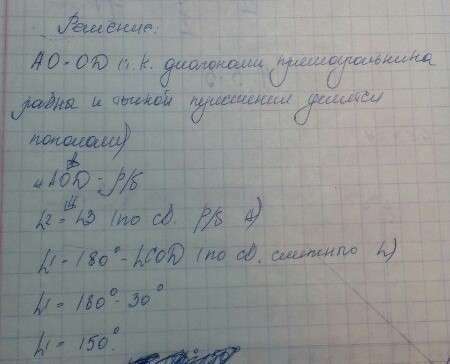 Решение:
AO=OD (т.к. диагонали прямоугольника
равны и точкой пересечения делятся
пополам)
⇓
△AOD - р/б
⇓
∠2=∠3 (по св. р/б △)
∠1=180°-∠COD (по св. смежного ∠)
∠1=180°-30°
∠1=150°.